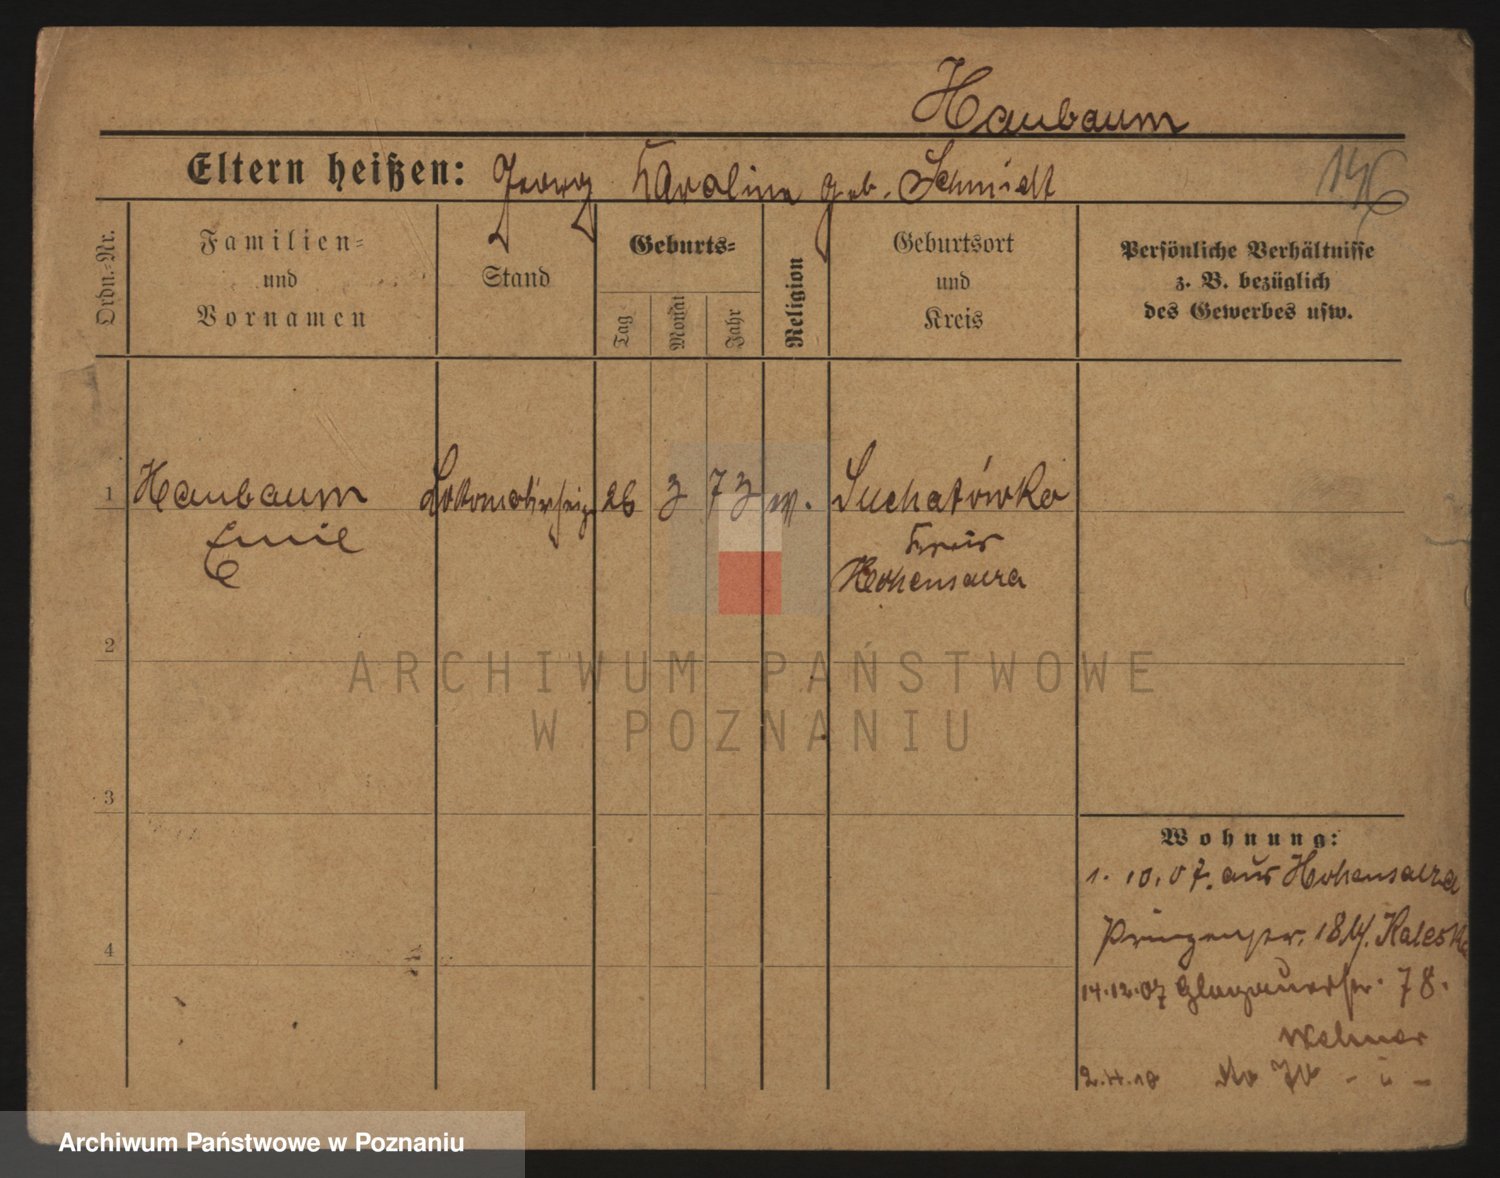 Haubaum
Eltern heißen: Georg Karoline geb. Schmidt
146
Ordn.-Nr.
Familien-
und
Vornamen
Stand
Geburts-
Tag
Monat
Jahr
Religion
Geburtsort
und
Kreis
Persönliche Verhältnisse
z. B. bezüglich
des Gewerbes usw.
1 Haubaum 26 3 73 Suchatówko
Emil Kreis
Hohensalza
2
3
4
Wohnung:
1. 10. 07. aus Hohensalza
Prinzenstr. 18
14.12.07 Glogauerstr. 78.
ARCHIWUM PAŃSTWOWE
W POZNANIU
Archiwum Państwowe w Poznaniu